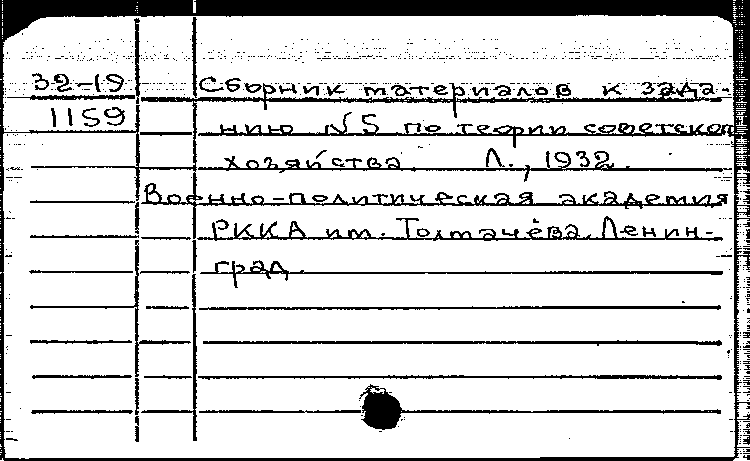 32-19
1159
Сборник материалов к зада-
нию №5 по теории советском
хозяйства. Л., 1932.
Военно-политическая академия
РККА им. Толмачёва. Ленин-
град.